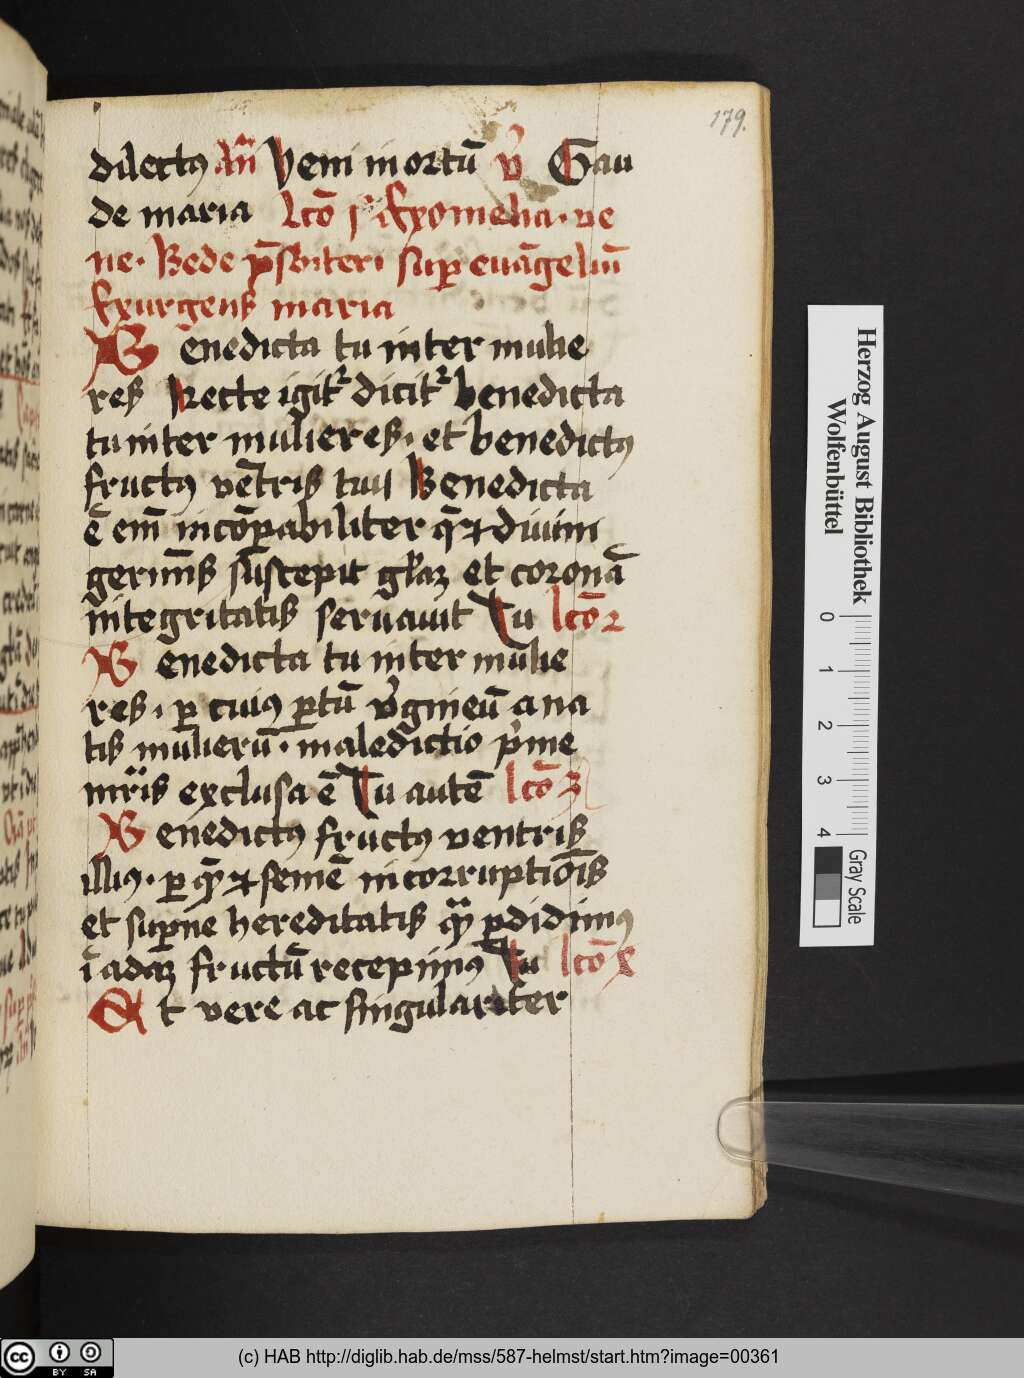 179.
dilectꝰ An̄ Veni in ortū v̉ Gau
de maria lcō j ex omelia · ve
ne · Bede p̄sbiteri sup euāgeliū
Exurgens maria
Benedicta tu inter mulie
res Recte igit̉ dicit̉ benedicta
tu inter mulieres · et benedictꝰ
fructꝰ vētris tui Benedicta
ē em̄ incōpabiliter q̄ ⁊ diuini
germīs suscepit gl̄aꝫ et coronā
integritatis seruauit Tu lcō 2
Benedicta tu inter mulie
res · ꝑ cuiꝰ ꝑtū v̉gineū a na
tis mulierū · maledictio p̉me
mr̄is exclusa ē Tu autē lcō 3
Benedictꝰ fructꝰ ventris
illiꝰ · ꝑ quē ⁊ semē incorruptiōis
et supne hereditatis quā ꝑdidimꝰ
ī adaꝫ fructū recepimꝰ Tu lcō x
Et vere ac singulariter
Herzog August Bibliothek
Wolfenbüttel
0 1 2 3 4
Gray Scale
cc BY SA
(c) HAB http://diglib.hab.de/mss/587-helmst/start.htm?image=00361